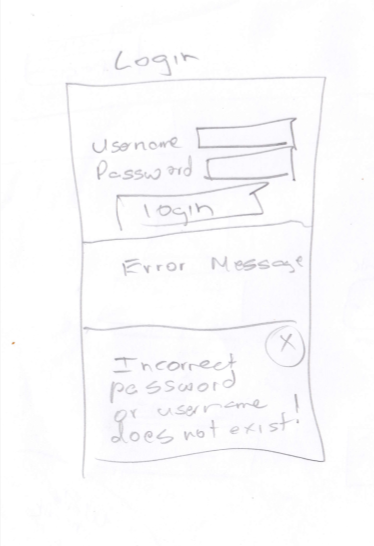 Login
Username
Password
login
Error Message
X
Incorrect
password
or username
does not exist!